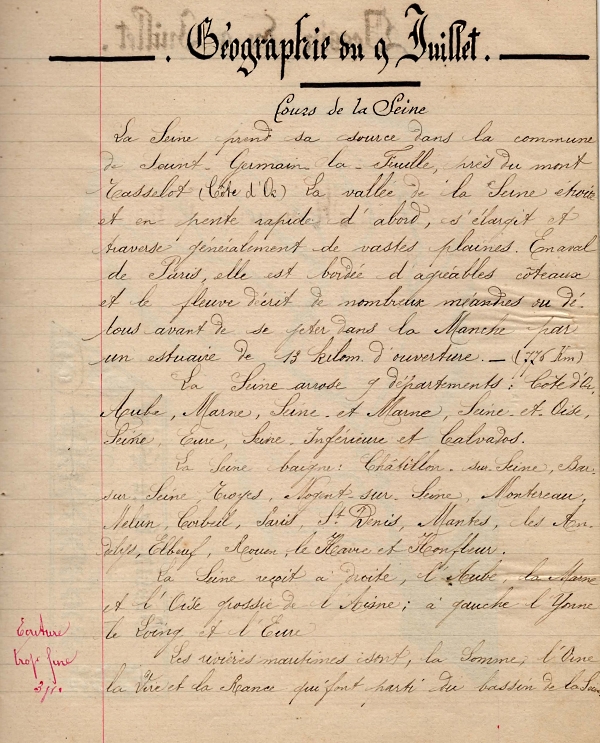 Géographie du 9 Juillet.
Cours de la Seine
La Seine prend sa source dans la commune
de Saint-Germain-la-Feuille, près du mont
Tasselot (Côte d'Or) La vallée de la Seine etroite
et en pente rapide d'abord, s'élargit et
traverse généralement de vastes plaines. En aval
de Paris, elle est bordée d'agréables côteaux
et le fleuve décrit de nombreux méandres ou dé-
tous avant de se jeter dans la Manche par
un estuaire de 13 kilom. d'ouverture. — (776 Km)
La Seine arrose 9 départements: Côte d'Or,
Aube, Marne, Seine-et Marne, Seine-et-Oise,
Seine, Eure, Seine-Inférieure et Calvados.
La Seine baigne: Châtillon-sur-Seine, Bar-
sur Seine Troyes, Nogent-sur-Seine, Montereau,
Melun, Corbeil, Paris, St Denis, Mantes, les An-
delys, Elbeuf, Rouen, le Havre et Honfleur.
La Seine reçoit à droite, l'Aube, la Marne
et l'Oise grossie de l'Aisne; à gauche l'Yonne
le Loing et l'Eure
Les rivières maritimes sont, la Somme, l'Orne
la Vire et la Rance qui font parti du bassin de la Seine
Ecriture
trop fine